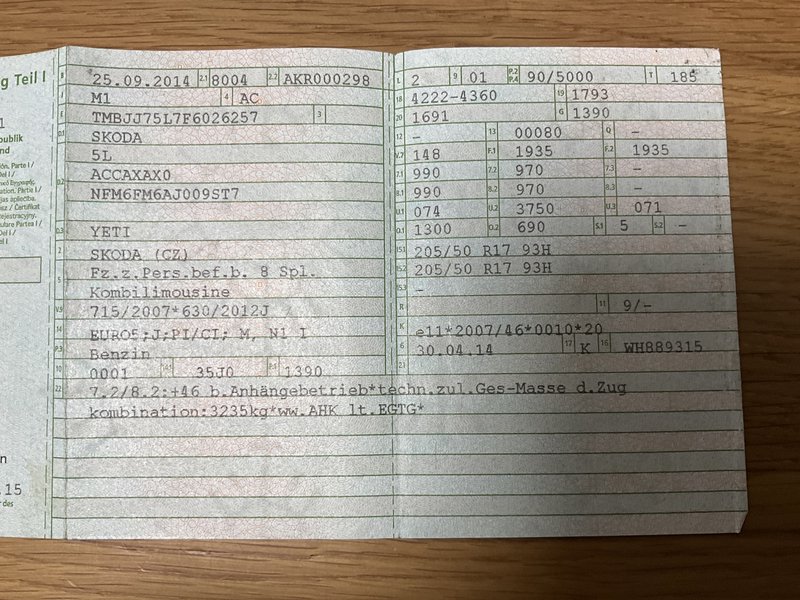 g Teil I
B 25.09.2014 2.1 8004 2.2 AKR000298
J M1 4 AC
E TMBJJ75L7F6026257 3
D.1 SKODA
D.2 5L
ACCAXAX0
NFM6FM6AJ009ST7
D.3 YETI
2 SKODA (CZ)
5 Fz.z.Pers.bef.b. 8 Spl.
Kombilimousine
V.9 715/2007*630/2012J
14 EURO5;J;PI/CI; M, N1 I
P.3 Benzin
10 0001 14.1 35J0 P.1 1390
22 7.2/8.2:+46 b.Anhängebetrieb*techn.zul.Ges-Masse d.Zug
kombination:3235kg*ww.AHK lt.EGTG*
L 2 9 01 P.2 P.4 90/5000 T 185
18 4222-4360 19 1793
20 1691 G 1390
12 - 13 00080 Q -
V.7 148 F.1 1935 F.2 1935
7.1 990 7.2 970 7.3 -
8.1 990 8.2 970 8.3 -
U.1 074 U.2 3750 U.3 071
O.1 1300 O.2 690 S.1 5 S.2 -
15.1 205/50 R17 93H
15.2 205/50 R17 93H
15.3 -
R 11 9/-
K e11*2007/46*0010*20
6 30.04.14 17 K 16 WH889315
21
.15